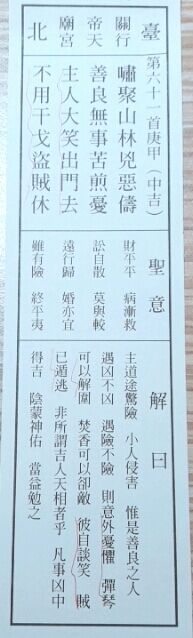 臺北
關行
帝天
廟宮
第六十一首庚甲(中吉)
嘯聚山林兇惡儔
善良無事苦煎憂
主人大笑出門去
不用干戈盜賊休
聖意
財平平 病漸救
訟自散 莫與較
遠行歸 婚亦宜
雖有險 終平夷
解曰
主道途驚險 小人侵害 惟是善良之人
遇凶不凶 遇險不險 則意外憂懼 彈琴
可以解圍 焚香可以卻敵 彼自談笑 賊
已遁逃 非所謂吉人天相者乎 凡事凶中
得吉 陰蒙神佑 當益勉之